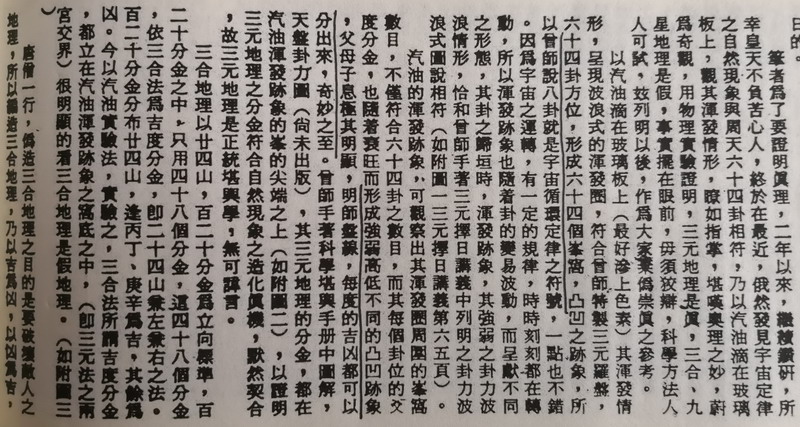 日的。
筆者爲了要證明眞理，二年以來，繼續鑽研，所
幸皇天不負苦心人，終於在最近，俄然發見宇宙定律
之自然現象與周天六十四卦相符，乃以汽油滴在玻璃
板上，觀其渾發情形，瞭如指掌，堪嘆奧理之妙，蔚
爲奇觀，用物理實驗證明，三元地理是眞，三合、九
星地理是假，事實擺在眼前，毋須狡辯，科學方法人
人可試，玆列明以後，作爲大家棄僞崇眞之參考。
以汽油滴在玻璃板上（最好滲上色素）其渾發情
形，呈現波浪式的渾發圈，符合曾師特製三元羅盤，
六十四卦方位，形成六十四個峯窩，凸凹之跡象，所
以曾師說八卦就是宇宙循環定律之符號，一點也不錯
。因爲宇宙之運轉，有一定的規律，時時刻刻都在轉
動，所以渾發跡象也隨着卦的變易波動，而呈獻不同
之形態，其卦之歸垣時，渾發跡象，其強弱之卦力波
浪情形，恰和曾師手著三元擇日講義中列明之卦力波
浪式圖說相符（如附圖一三元擇日講義第六五頁）。
汽油的渾發跡象，可觀察出其渾發圈周圍的峯窩
數目，不僅符合六十四卦之數目，而其每個卦位的父
度分金，也隨着衰旺而形成強弱高低不同的凸凹跡象
，父母子息極其明顯，明師盤線，每度的吉凶都可以
分出來，奇妙之至。曾師手著科學堪輿手册中圖解，
天盤卦力圖（尙未出版），其三元地理的分金，都在
汽油渾發跡象的峯的尖端之上（如附圖二），以證明
三元地理之分金符合自然現象之造化眞機，默然契合
，故三元地理是正統堪輿學，無可諱言。
三合地理以廿四山，百二十分金爲立向標準，百
二十分金之中，只用四十八個分金，這四十八個分金
，依三合法爲吉度分金，卽二十四山兼左兼右之法。
百二十分金分布廿四山，逢丙丁、庚辛爲吉，其餘爲
凶。今以汽油實驗法，實驗之，三合法所謂吉度分金
，都立在汽油渾發跡象之窩底之中，（卽三元法之兩
宮交界）很明顯的看三合地理是假地理。（如附圖三
唐僧一行，僞造三合地理之目的是要破壞敵人之
地理，所以僞造三合地理，乃以吉爲凶，以凶爲吉，